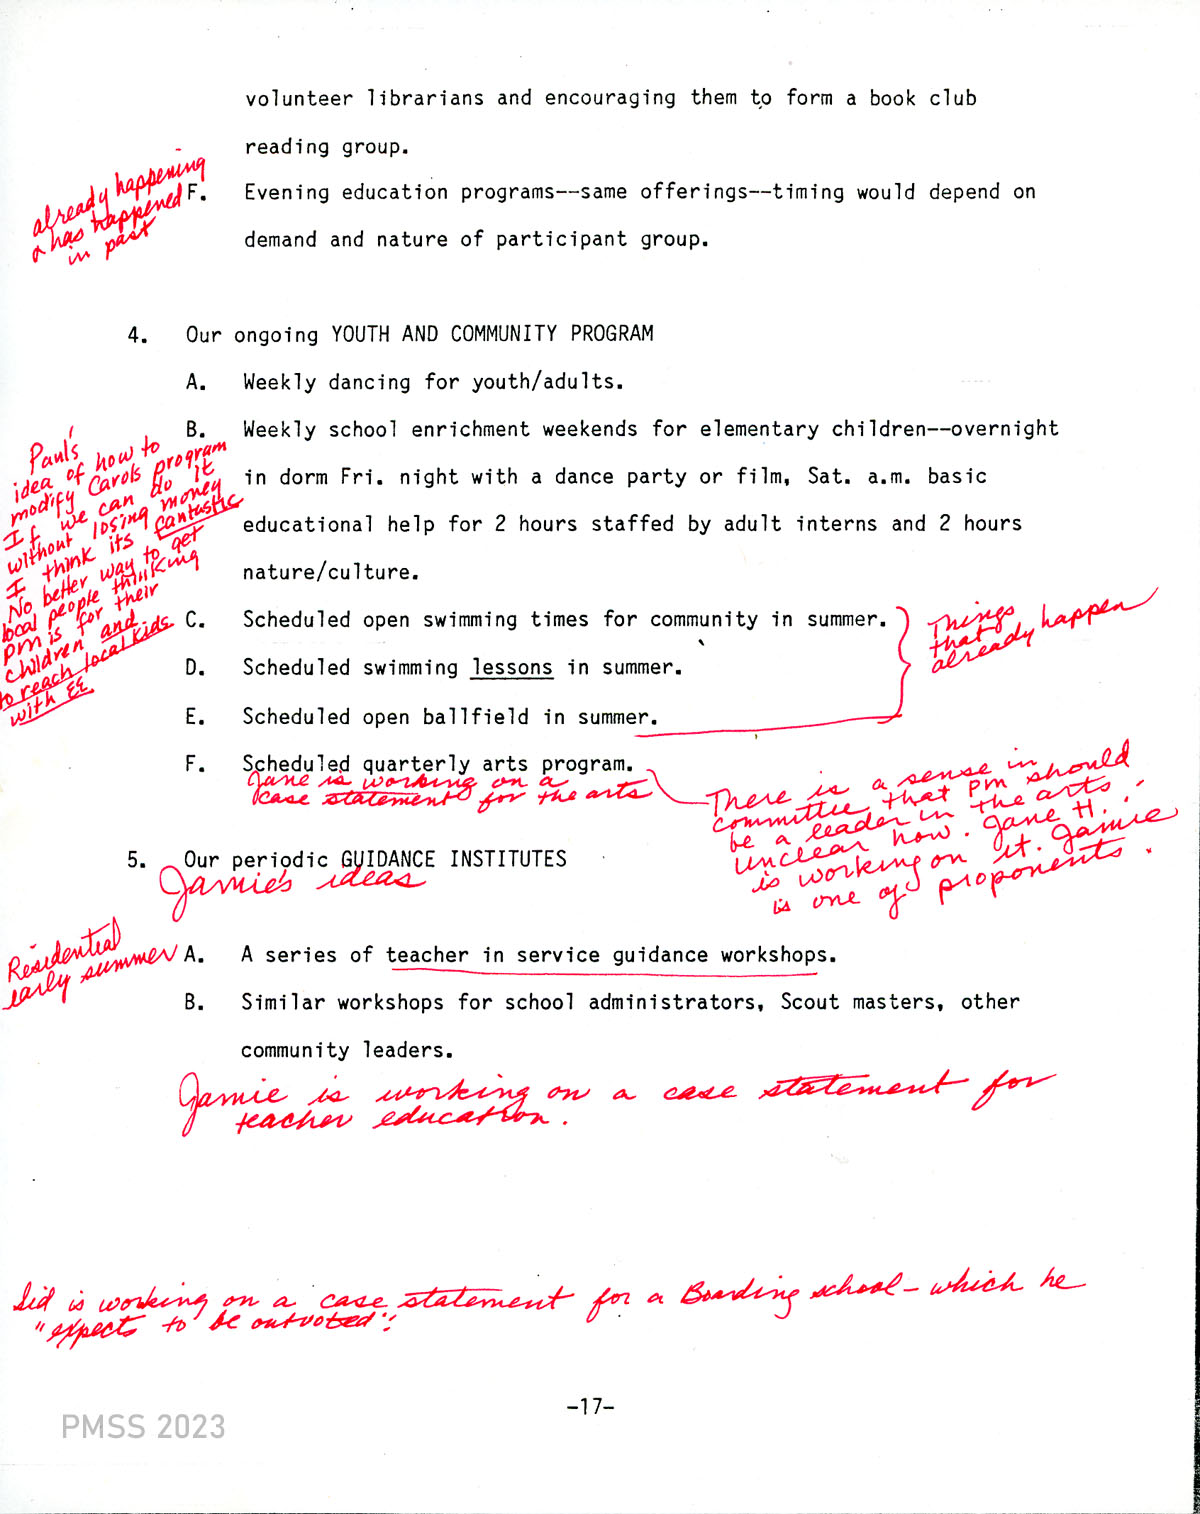 volunteer librarians and encouraging them to form a book club
reading group.
already happening
& has happened
in past
F. Evening education programs--same offerings--timing would depend on
demand and nature of participant group.
4. Our ongoing YOUTH AND COMMUNITY PROGRAM
A. Weekly dancing for youth/adults.
B. Weekly school enrichment weekends for elementary children--overnight
in dorm Fri. night with a dance party or film, Sat. a.m. basic
educational help for 2 hours staffed by adult interns and 2 hours
nature/culture.
Paul's
idea of how to
modify Carols program
If we can do it
without losing money
I think its fantastic
No better way to get
local people thinking
PM is for their
children and
to reach local kids
with EE
C. Scheduled open swimming times for community in summer.
D. Scheduled swimming lessons in summer.
E. Scheduled open ballfield in summer.
Things
that
already happen
F. Scheduled quarterly arts program.
Jane is working on a
case statement for the arts
There is a sense in
committee that PM should
be a leader in the arts.
Unclear how. Jane H.
is working on it. Jamie
is one of proponents.
5. Our periodic GUIDANCE INSTITUTES
Jamie's ideas
Residential
early summer
A. A series of teacher in service guidance workshops.
B. Similar workshops for school administrators, Scout masters, other
community leaders.
Jamie is working on a case statement for
teacher education.
Sid is working on a case statement for a Boarding school - which he
"expects to be outvoted".
-17-
PMSS 2023